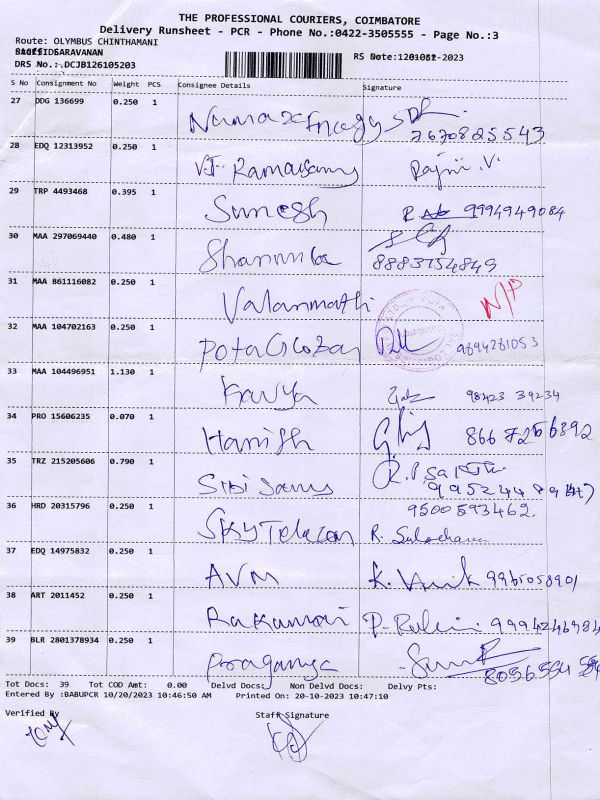 THE PROFESSIONAL COURIERS, COIMBATORE
Delivery Runsheet - PCR - Phone No.:0422-3505555 - Page No.:3
Route: OLYMBUS CHINTHAMANI
SARAVANAN
RS No
DRS No.:.DCJB126105203
S No Consignment No Weight PCS Consignee Details Signature
27 DDG 136699 0.250 1 Numax Energy
7670825543
28 EDQ 12313952 0.250 1 V.T. Ramasamy Rajni .V.
29 TRP 4493468 0.395 1 Sunesh 9994949084
30 MAA 297069440 0.480 1
8883754849
31 MAA 861116082 0.250 1 Valarmathi N/P
32 MAA 104702163 0.250 1 Pota Global 9894281053
33 MAA 104496951 1.130 1 Kavya 98423 39234
34 PRO 15606235 0.070 1 Harish 866 7266892
35 TRZ 215205606 0.790 1 Sibi Samy
36 HRD 20315796 0.250 1 Sky Telecom 9500593462
R. Sulochana
37 EDQ 14975832 0.250 1 AVM 9965058901
38 ART 2011452 0.250 1 Rakumari 9994246984
39 BLR 2801378934 0.250 1 Praganya
Tot Docs: 39 Tot COD Amt: 0.00 Delvd Docs: Non Delvd Docs: Delvy Pts:
Entered By :BABUPCR 10/20/2023 10:46:50 AM Printed On: 20-10-2023 10:47:10
Verified By Staff Signature